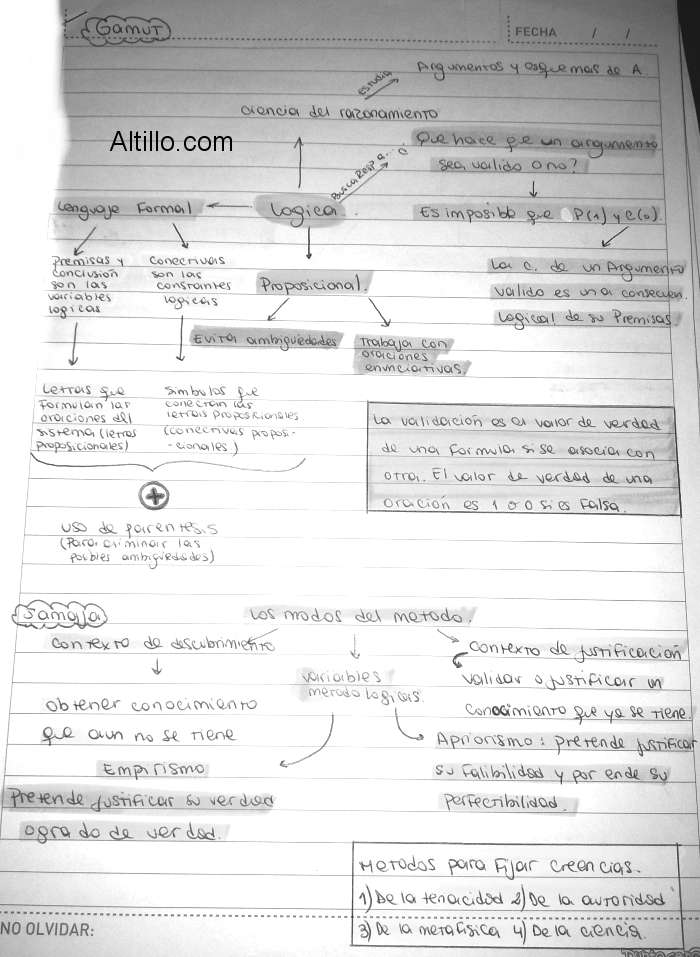 Gamut
FECHA / /
Argumentos y esquemas de A
Estudia
ciencia del razonamiento
Altillo.com
Busca Resp a...
Que hace qe un argumento
sea valido o no?
Lenguaje Formal
Logica.
Es imposible que P(1) y C(0).
Premisas y
conclusión
son las
variables
logicas
Conectivas
son las
constantes
logicas
Proposicional.
La c. de un Argumento
valido es una consecuen.
Logical de su Premisas.
Evita ambiguedades
Trabaja con
oraciones
enunciativas.
Letras que
Formulan las
oraciones del
sistema (letras
proposicionales)
Simbolos que
conectan las
letras proposicionales
(conectivas proposi-
-cionales)
La validación es el valor de verdad
de una formula si se asocia con
otra. El valor de verdad de una
oración es 1 o 0 si es Falsa.
+
uso de parentesis
(Para eliminar las
posibles ambiguedades)
Samaja
Los modos del metodo.
contexto de descubrimiento
Contexto de justificación
variables
metodologicas.
validar o justificar un
conocimiento que ya se tiene
obtener conocimiento
que aun no se tiene
Apriorismo: pretende justificar
su falibilidad y por ende su
perfectibilidad.
Empirismo
Pretende justificar su verdad
o grado de verdad.
Metodos para Fijar creencias.
1) De la tenacidad 2) De la autoridad
3) De la metafisica 4) De la ciencia.
NO OLVIDAR: